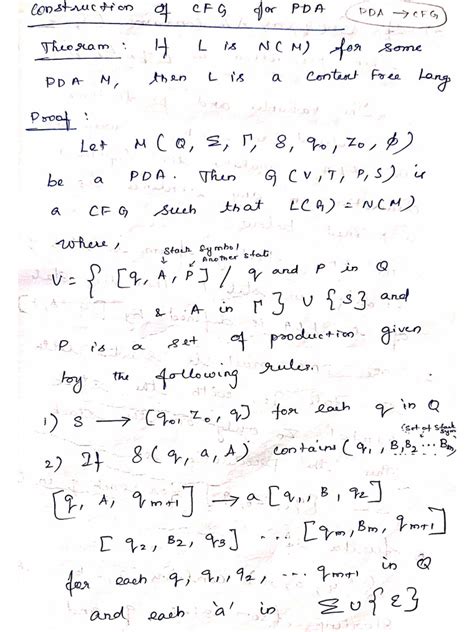 Construction of CFG for PDA (PDA → CFG)
Theoram : If L is N(M) for some
PDA M, then L is a Context Free Lang
Proof :
Let M(Q, Σ, Γ, δ, q0, z0, ϕ)
be a PDA. Then G(V,T,P,S) is
a CFG such that L(G) = N(M)
where,
↓ Stack Symbol
↙ Another state
V = { [q, A, P] / q and P in Q
& A in Γ } ∪ {S} and
P is a set of production given
by the following rules.
1) S → [q0, z0, q] for each q in Q
(set of stack sym
2) If δ(q, a, A) contains (q1, B1B2 ... Bm)
[q, A, qm+1] → a [q1, B, q2]
[q2, B2, q3] ... [qm, Bm, qm+1]
for each q, q1, q2, ... qm+1 in Q
and each 'a' in Σ∪{ε}